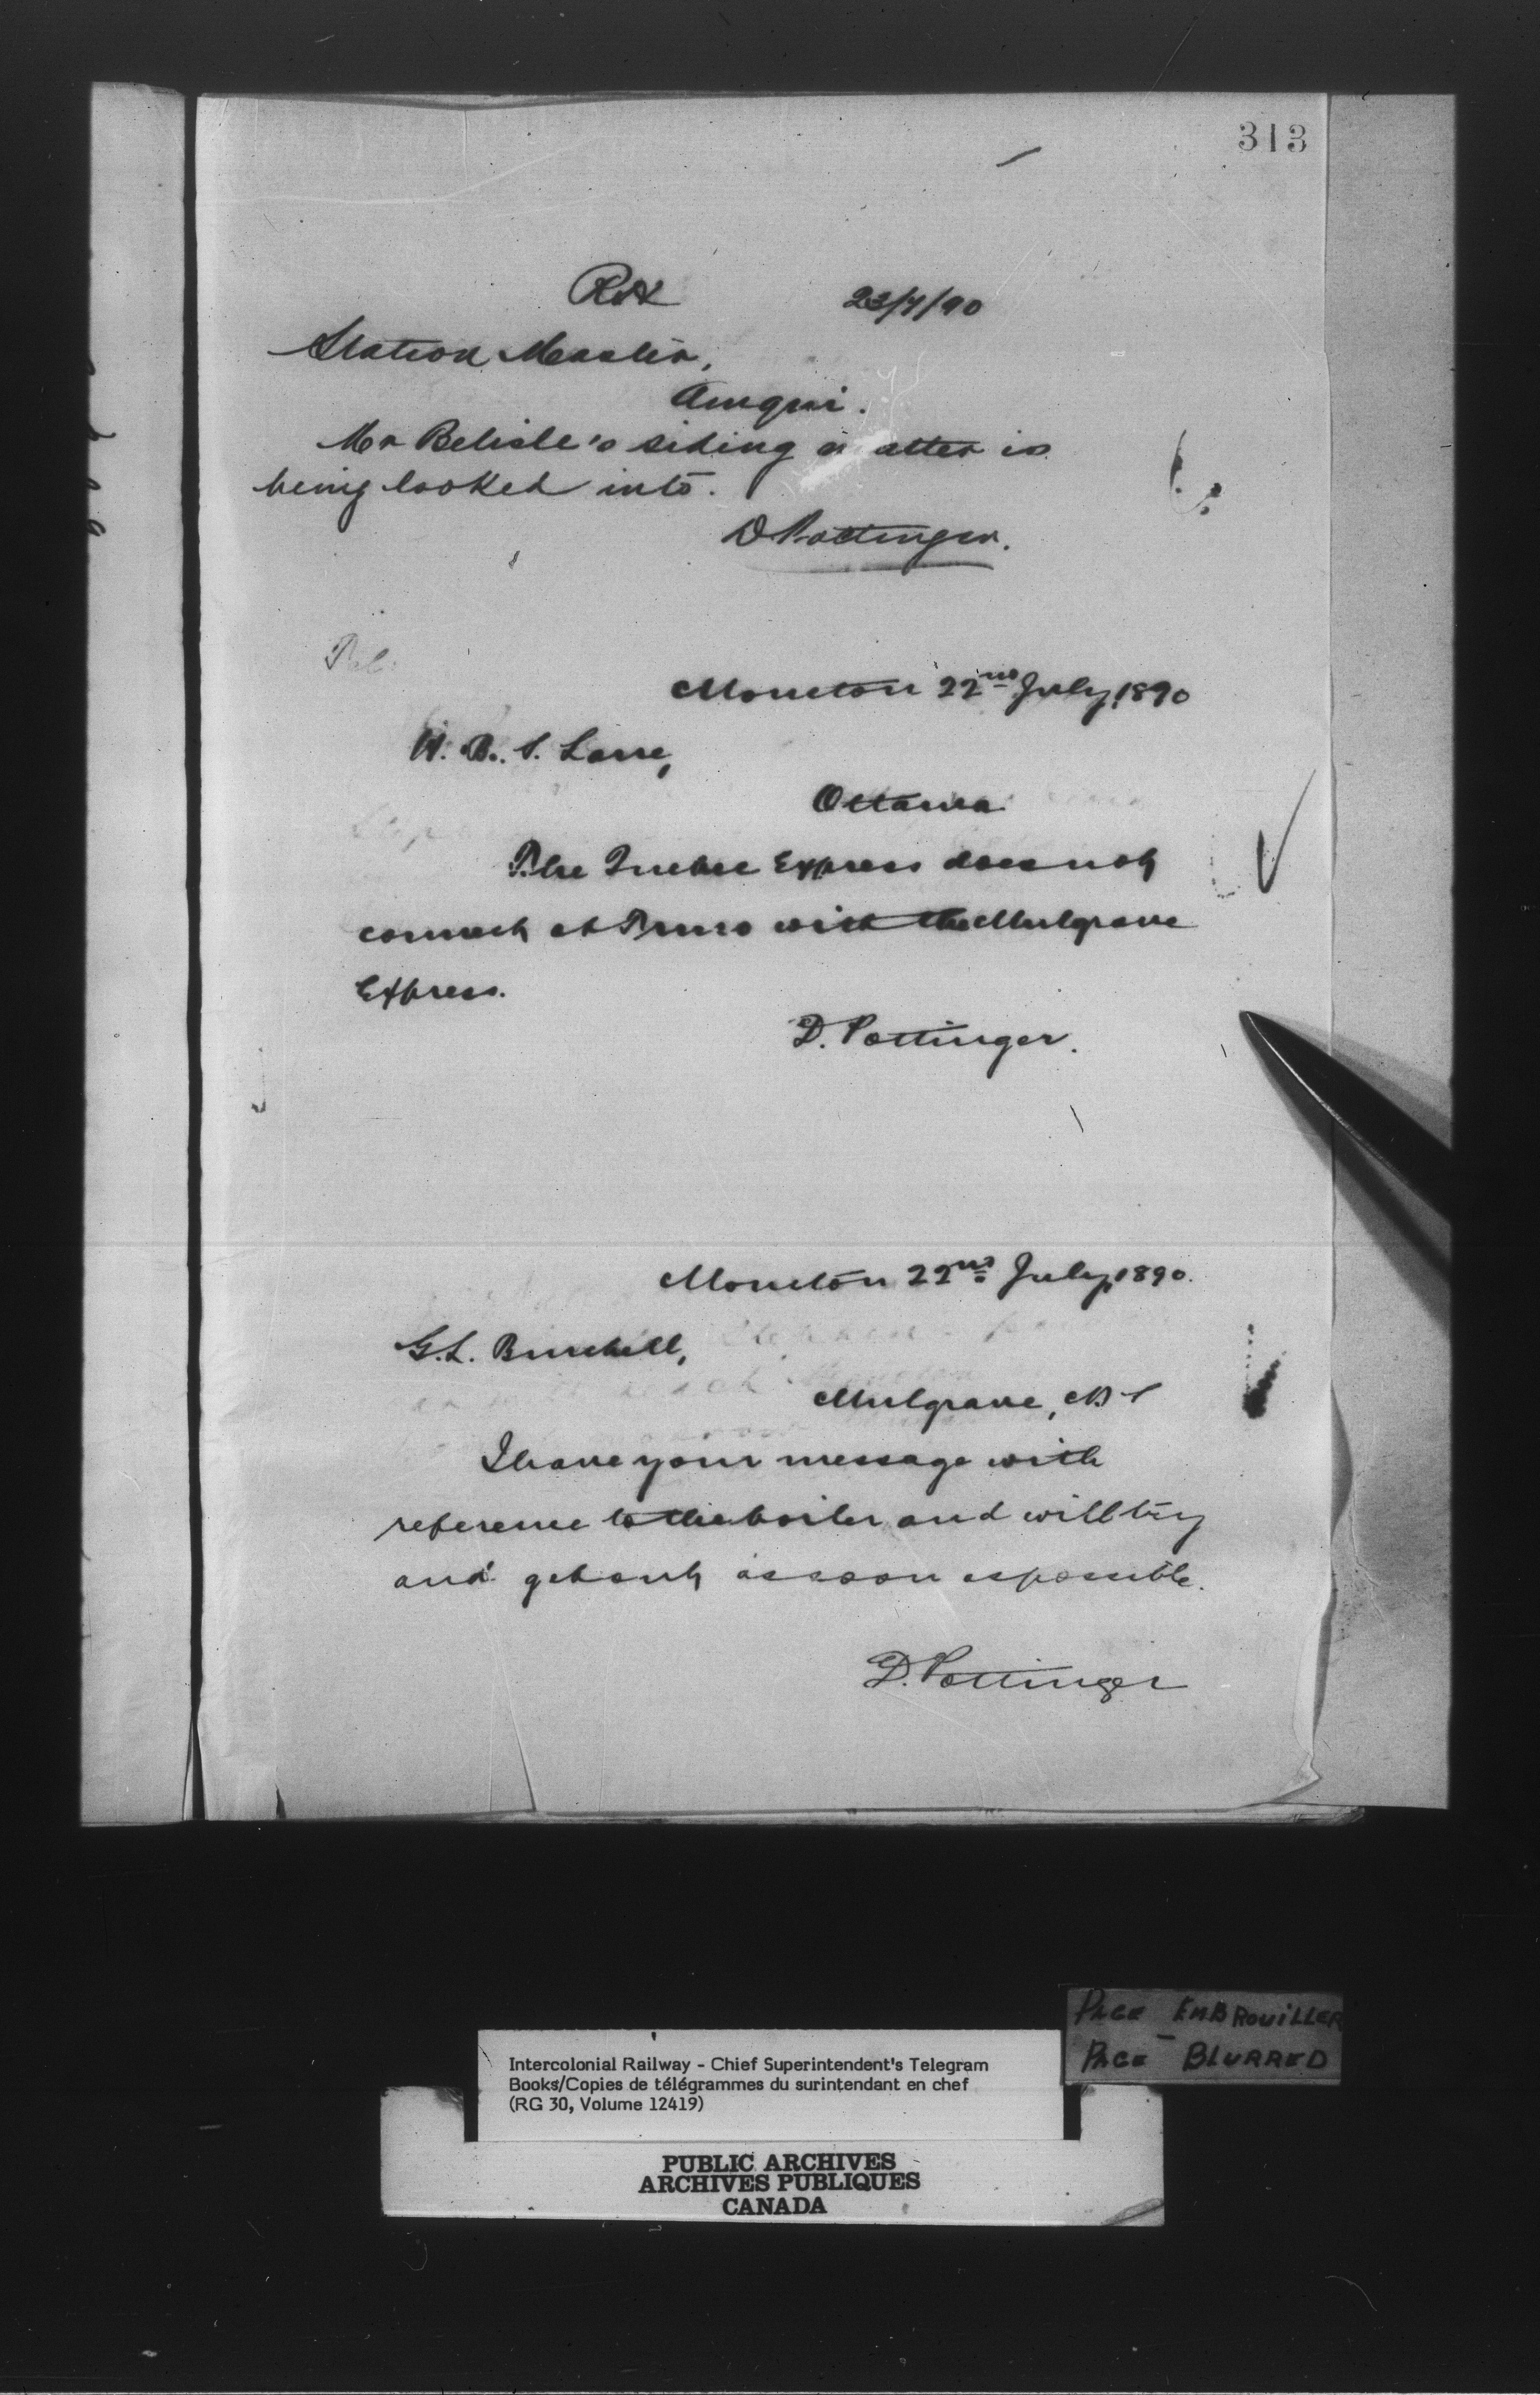 313
23/7/90
Station Master,
Amqui.
Mr Belisle's siding matter is
being looked into.
D Pottinger.
Moncton 22nd July, 1890
W. B. S. Lane,
Ottawa
The Quebec Express does not
connect at Truro with the Mulgrave
Express.
D. Pottinger.
Moncton 22nd July, 1890.
G.L. Burchell,
Mulgrave, N S
I have your message with
reference to the boiler and will try
and get out as soon as possible.
D. Pottinger
PAGE EMBROUILLER
PAGE - BLURRED
Intercolonial Railway - Chief Superintendent's Telegram
Books/Copies de télégrammes du surintendant en chef
(RG 30, Volume 12419)
PUBLIC ARCHIVES
ARCHIVES PUBLIQUES
CANADA